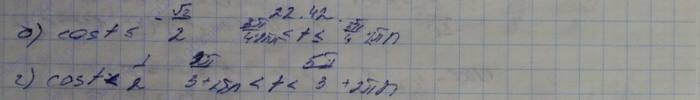 22.42.
б) cost ≤ -√2/2 3π/4+2πn ≤ t ≤ 5π/4+2πn
г) cost < 1/2 π/3+2πn < t < 5π/3+2πn